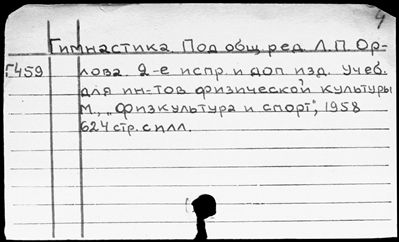 4
Гимнастика. Под общ. ред. Л.П. Ор-
Г459 лова. 2-е испр. и доп. изд. Учеб.
для ин-тов физической культуры
М., „Физкультура и спорт", 1958
624 стр. с илл.